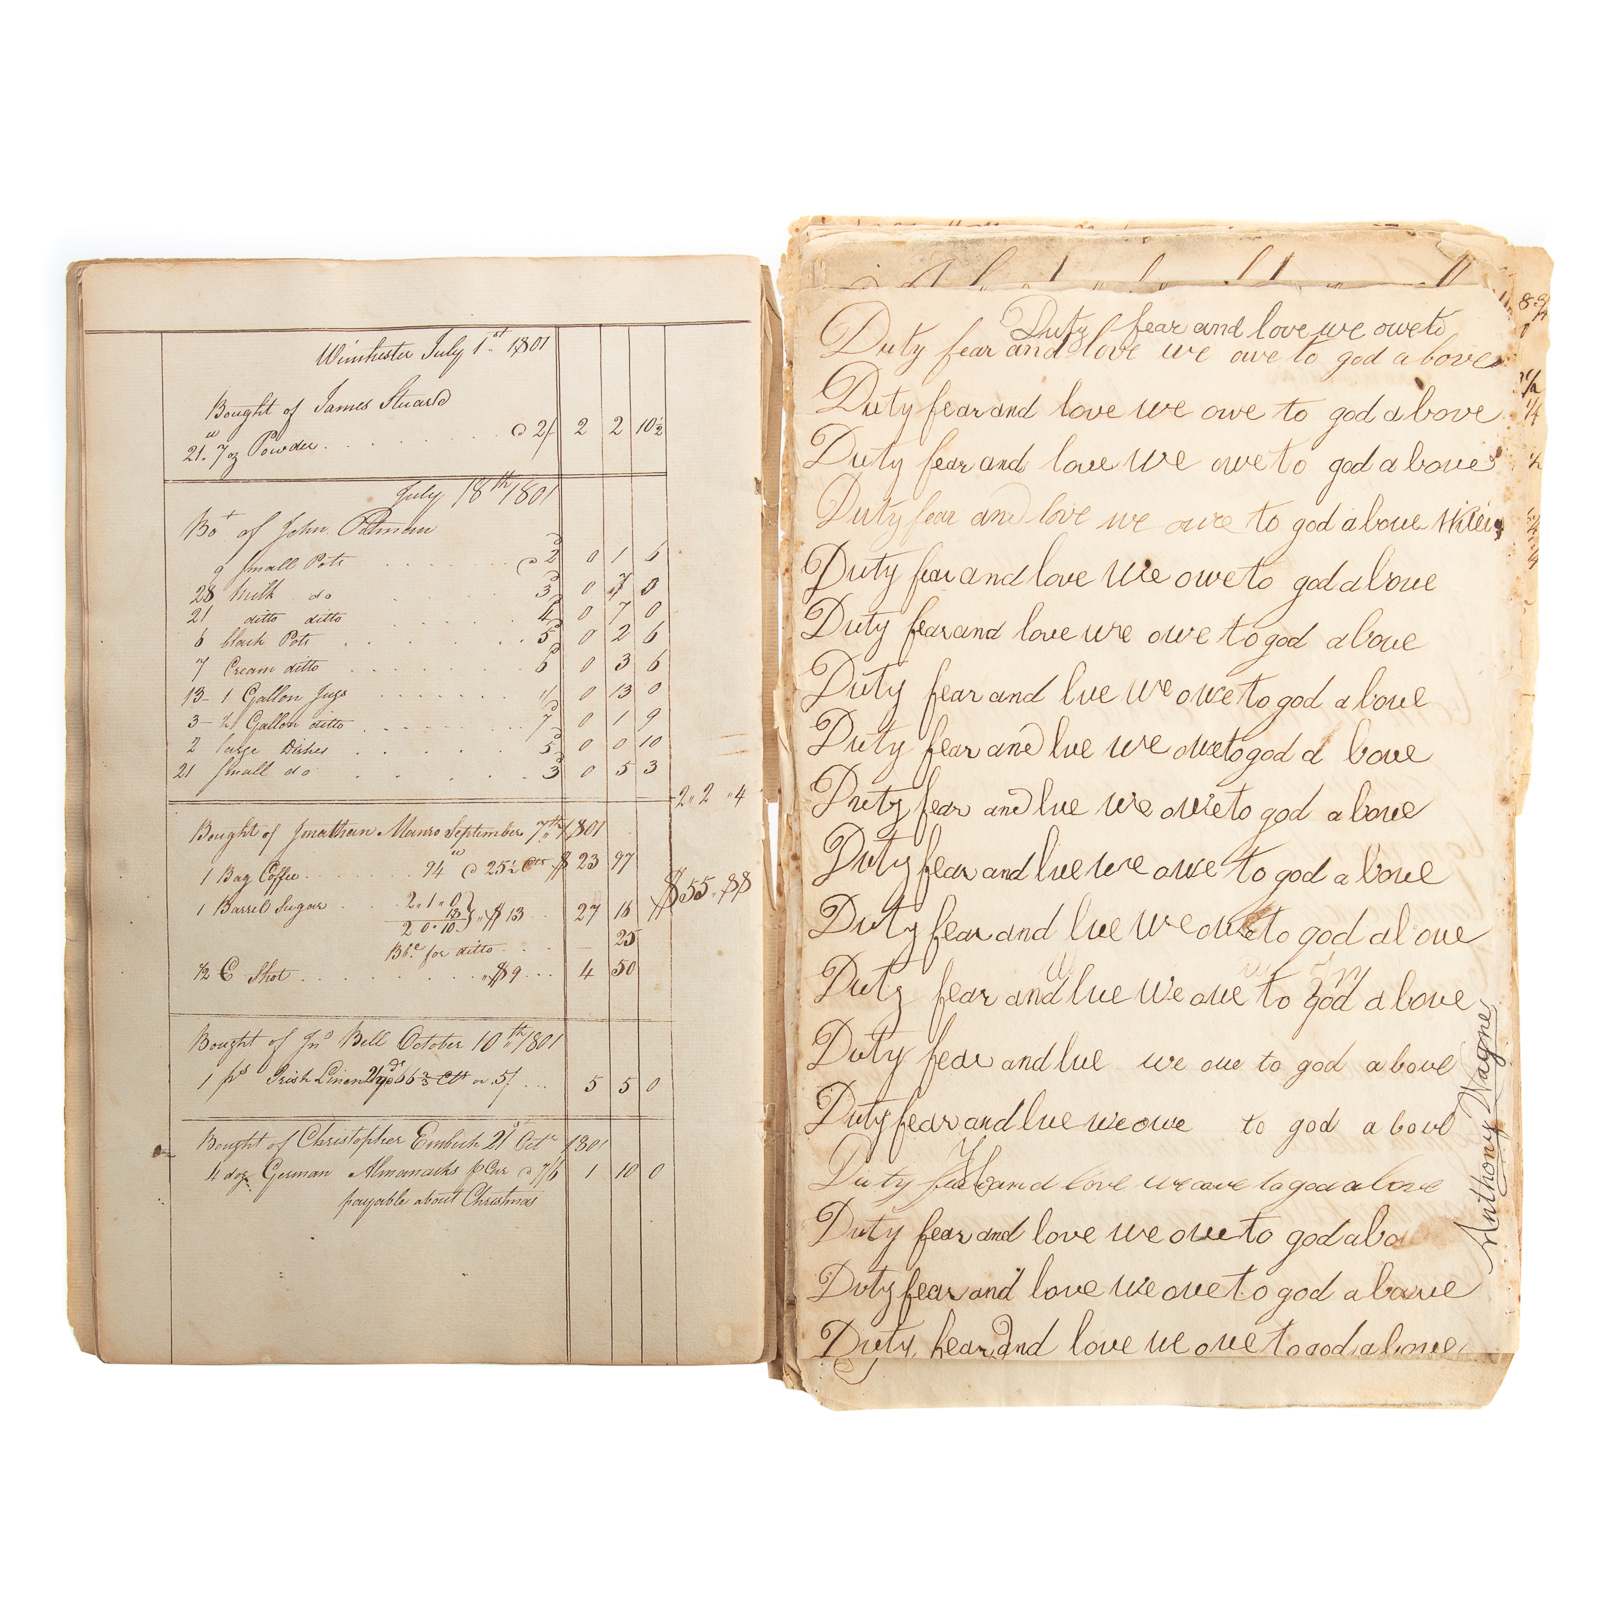 Winchester July 1st 1801
Bought of James Stuard
21 w 7 oz Powder @ 2/ 2 2 10½
July 18th 1801
Bot of John Pitman
9 Small Pots @ 2d 0 1 6
28 Milk do 3d 0 7 0
21 ditto ditto 4d 0 7 0
6 black Pots 5d 0 2 6
7 Cream ditto 6d 0 3 6
13 - 1 Gallon Jugs 1/ 0 13 0
3 - ½ Gallon ditto 7d 0 1 9
2 large Dishes 5d 0 0 10
21 Small do 3d 0 5 3
2 " 2 " 4
Bought of Jonathan Manro September 7th 1801
1 Bag Coffee 94 w @ 25½ Cts $ 23 97
1 Barrel Sugar 2.1.0 " $13 27 16
13
2 0.10
$55.88
Bbl for ditto 25
½ C Shot " $9 4 50
Bought of Jno Bell October 10th 1801
1 ps Irish Linen 21 yds 66⅔ Cts or 5/ 5 5 0
Bought of Christopher Embich 21st Octr 1801
4 doz German Almanacks @ 7/6 1 10 0
payable about Christmas
Duty fear and love we owe to
Duty fear and love we owe to god above
Duty fear and love we owe to god above
Duty fear and love we owe to god above
Duty fear and love we owe to god above
Duty fear and love we owe to god above
Duty fear and love we owe to god above
Duty fear and lve we owe to god above
Duty fear and lve we owe to god a bove
Duty fear and lve we owe to god a bove
Duty fear and lve we owe to god a bove
Duty fear and lve we owe to god above
Duty fear and lve we owe to god a bove
Duty fear and lve we owe to god a bove
Duty fear and lve we owe to god a bove
Duty fear and love we owe to god above
Duty fear and love we owe to god abo
Duty fear and love we owe to god above
Duty fear and love we owe to god above
Anthony Wagner